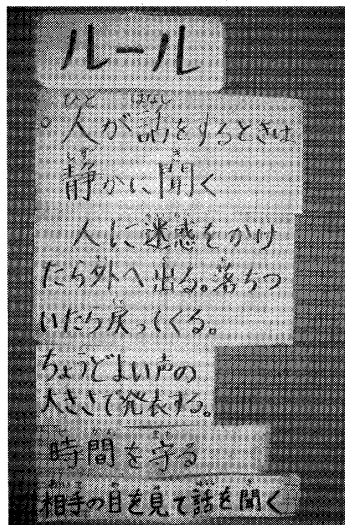 ルール
。人が話をするときは
静かに聞く
人に迷惑をかけ
たら外へ出る。落ちつ
いたら戻ってくる。
ちょうどよい声の
大きさで発表する。
時間を守る
相手の目を見て話を聞く